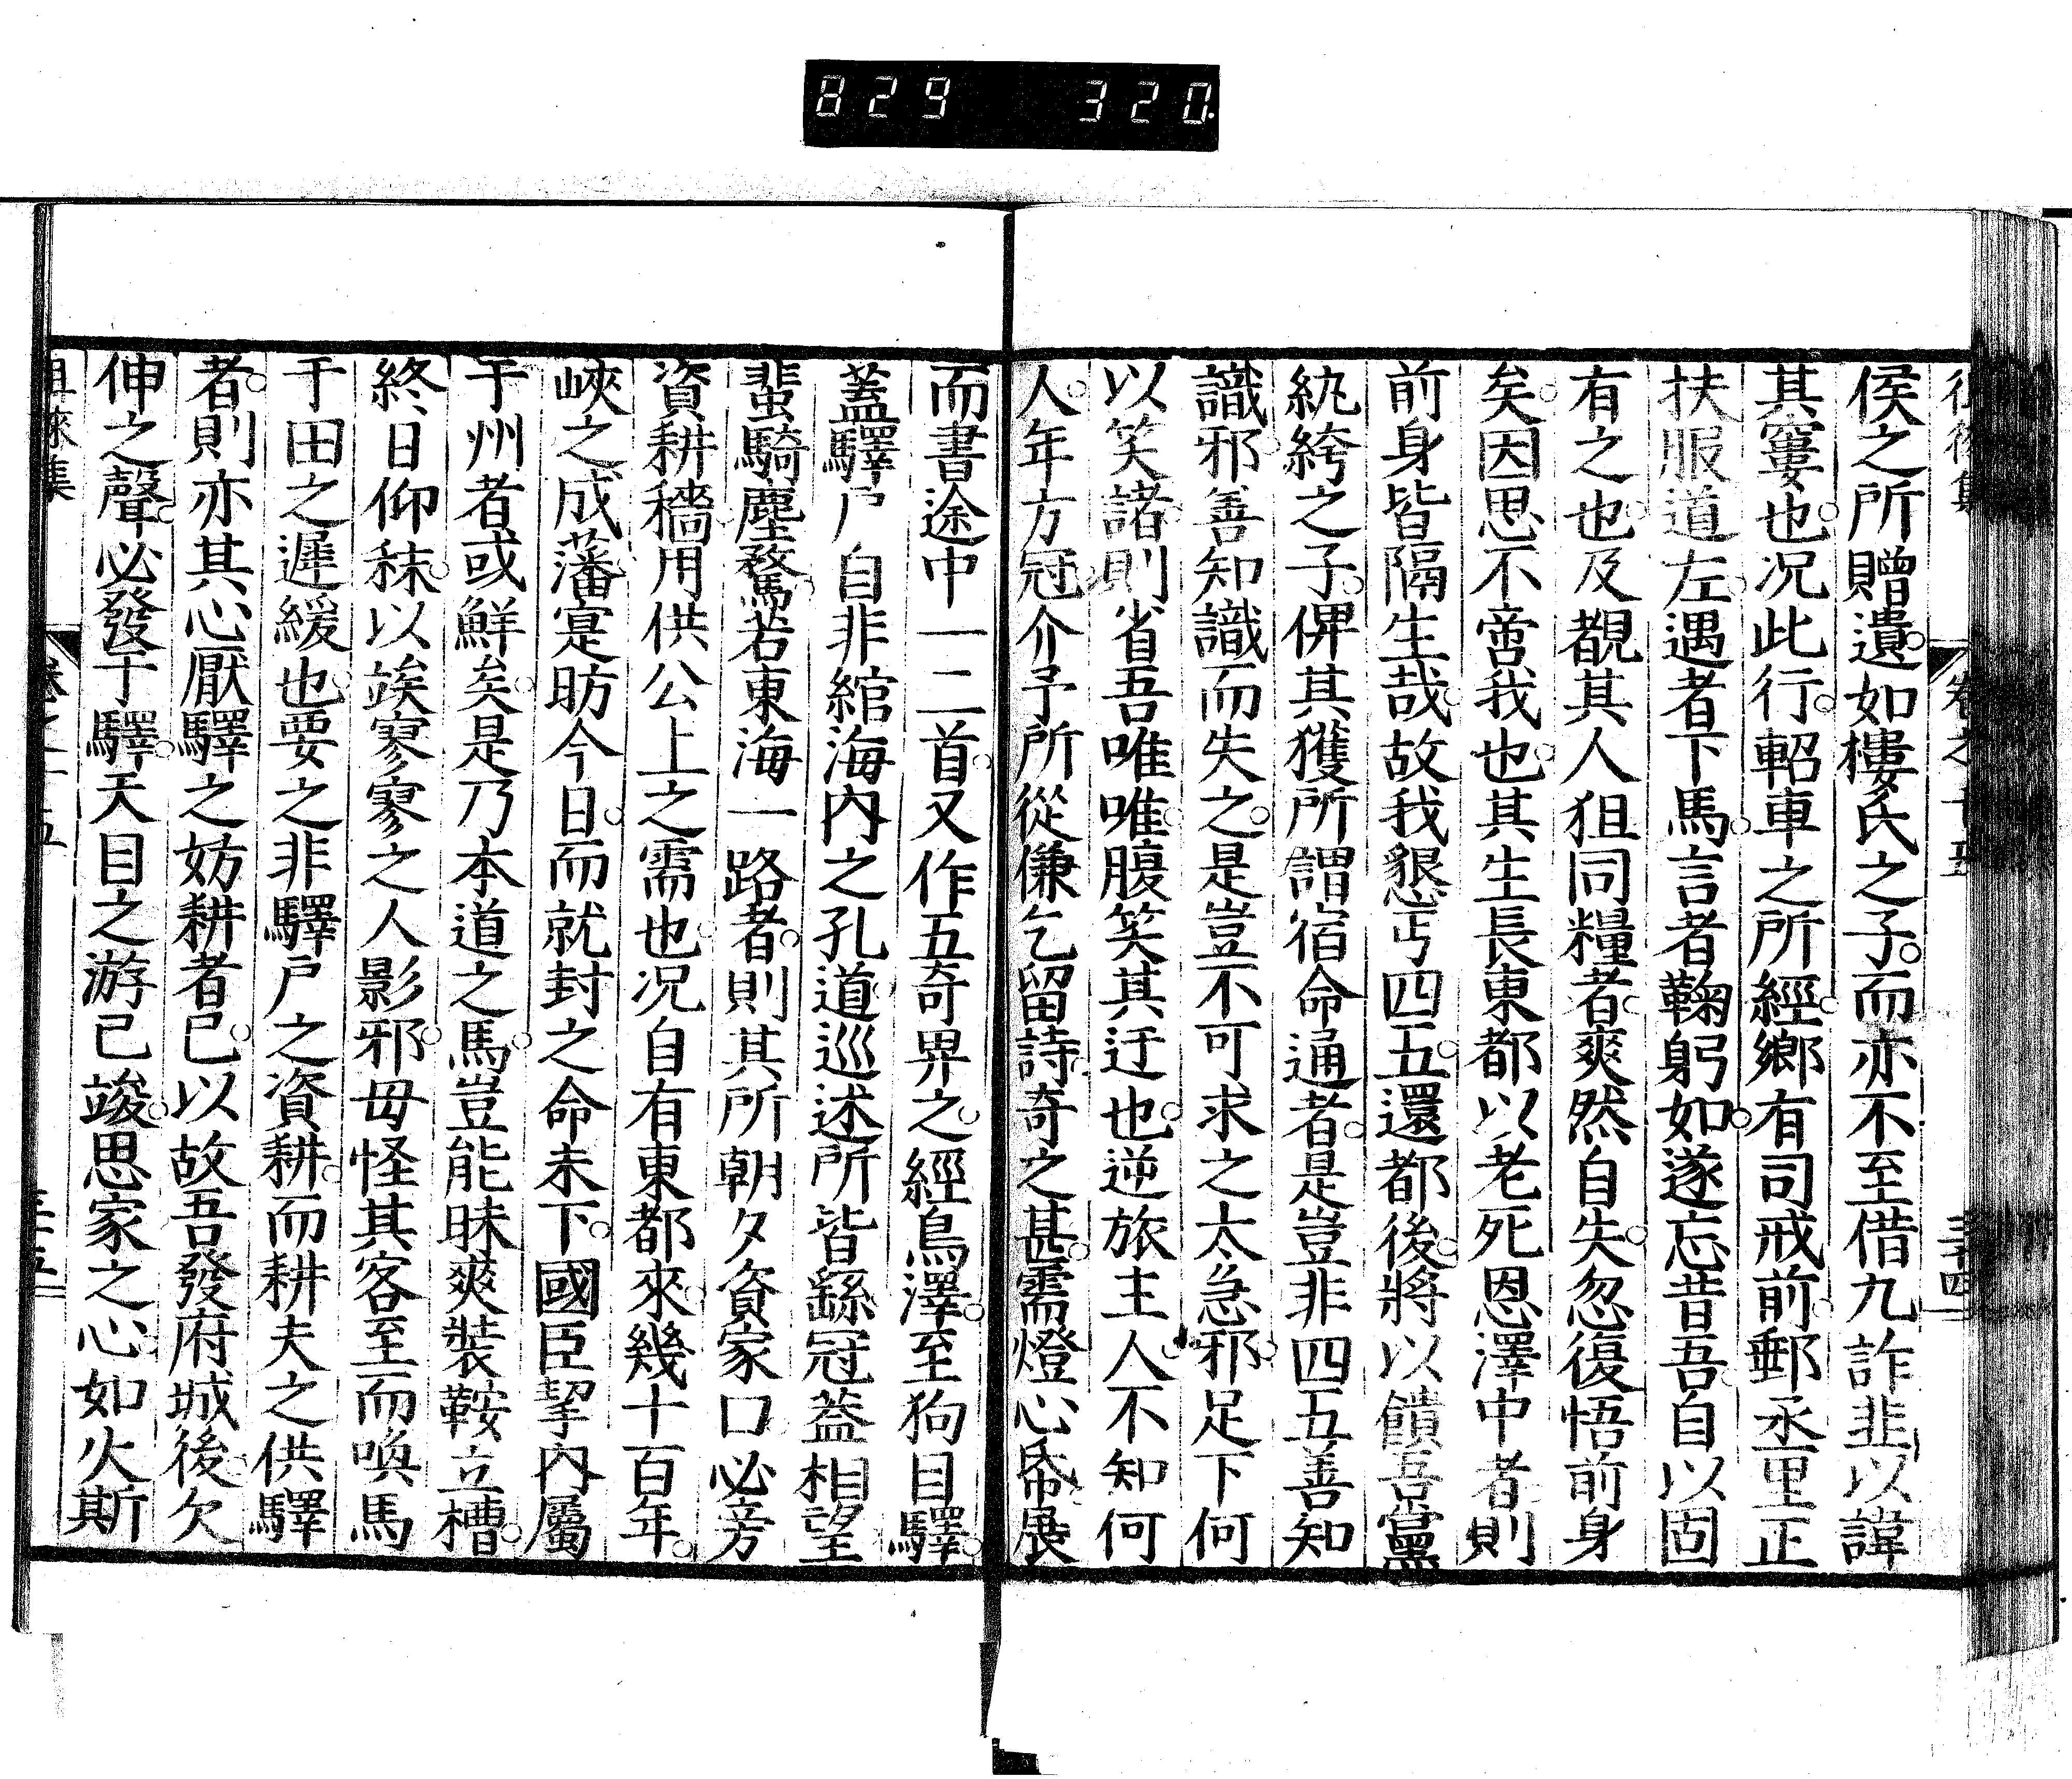 829 320
徂徠集 卷之十五 三十四
侯之所贈遺如樓氏之子而亦不至借九詐韭以諱
其窶也况此行軺車之所經鄉有司戒前郵丞里正
扶服道左遇者下馬言者鞠躬如遂忘昔吾自以固
有之也及覩其人狙同糧者爽然自失忽復悟前身
矣因思不啻我也其生長東都以老死恩澤中者則
前身皆隔生哉故我懇丐四五還都後將以饋吾黨
紈絝之子俾其獲所謂宿命通者是豈非四五善知
識邪善知識而失之是豈不可求之太急邪足下何
以笑諸則省吾唯唯腹笑其迂也逆旅主人不知何
人年方冠介予所從傔乞留詩奇之甚需燈心帋展
而書途中一二首又作五奇畀之經鳥澤至狗目驛
蓋驛戶自非綰海內之孔道巡述所皆繇冠蓋相望
蜚騎塵騖若東海一路者則其所朝夕資家口必旁
資耕穡用供公上之需也况自有東都來幾十百年
峽之成藩寔昉今日而就封之命未下國臣挈內屬
于州者或鮮矣是乃本道之馬豈能昧爽裝鞍立槽
終日仰秣以竢寥寥之人影邪毋怪其客至而喚馬
于田之遲緩也要之非驛戶之資耕而耕夫之供驛
者則亦其心厭驛之妨耕者已以故吾發府城後欠
伸之聲必發于驛天目之游已竣思家之心如火斯
徂徠集 卷之十五 三十五